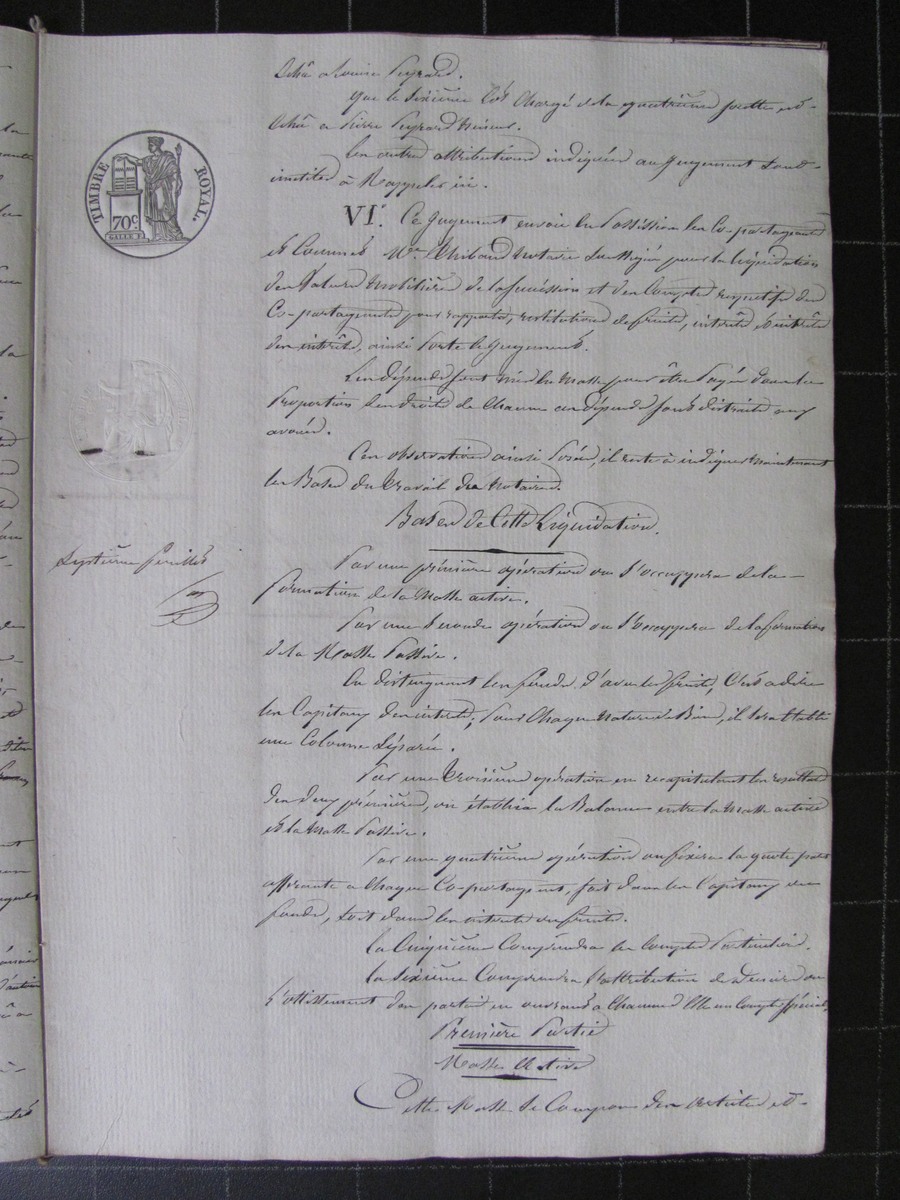 échu a Louise Peyrard.
Que le sixième lôt chargé de la quatrième soulte est
échu a Pierre Peyrard mineur.
Les autres attributions indiquées au Jugement sont
inutiles à Rappeler ici.
VI°. Ce Jugement envoie en Possession les Co-partageants
et Commet Me Notaire pour la liquidation
des Valeurs Mobilières de la Succession et des Comptes respectifs des
Co-partageants pour rapports, restitutions de fruits, intérêts et intérêts
des intérêts, ainsi Porte le Jugement.
Les dépens sont mis en Masse pour être Payés dans la
Proportion des droits de Chacun ces dépens sont distraits aux
avoués.
Ces observations ainsi Posées, il reste à indiquer maintenant
les Bases du travail du Notaire.
Bases de Cette Liquidation.
Par une première opération on s'occuppera de la
formation de la Masse active.
Par une Seconde opération on s'occuppera de la formation
de la Masse Passive.
En distinguant les fonds d'avec les fruits, C'est a dire
les Capitaux des intérêts, Pour Chaque Nature de Bien, il sera Etabli
une Colonne Séparée.
Par une Troisième opération en recapitulant les resultats
des deux premières, on établira la Balance entre la Masse active
et la Masse Passive.
Par une quatrième opération on fixera la quote part
afférante a Chaque Co-partageant, soit dans les Capitaux ou
fonds, soit dans les intérets ou fruits.
La Cinquième Comprendra les Comptes Particuliers.
La Sixième Comprendra l'attribution
des parts en revenant a Chacun
Première Partie
Masse Active
Cette Masse Se Compose des articles et
TIMBRE ROYAL.
70c
Septième feuillet